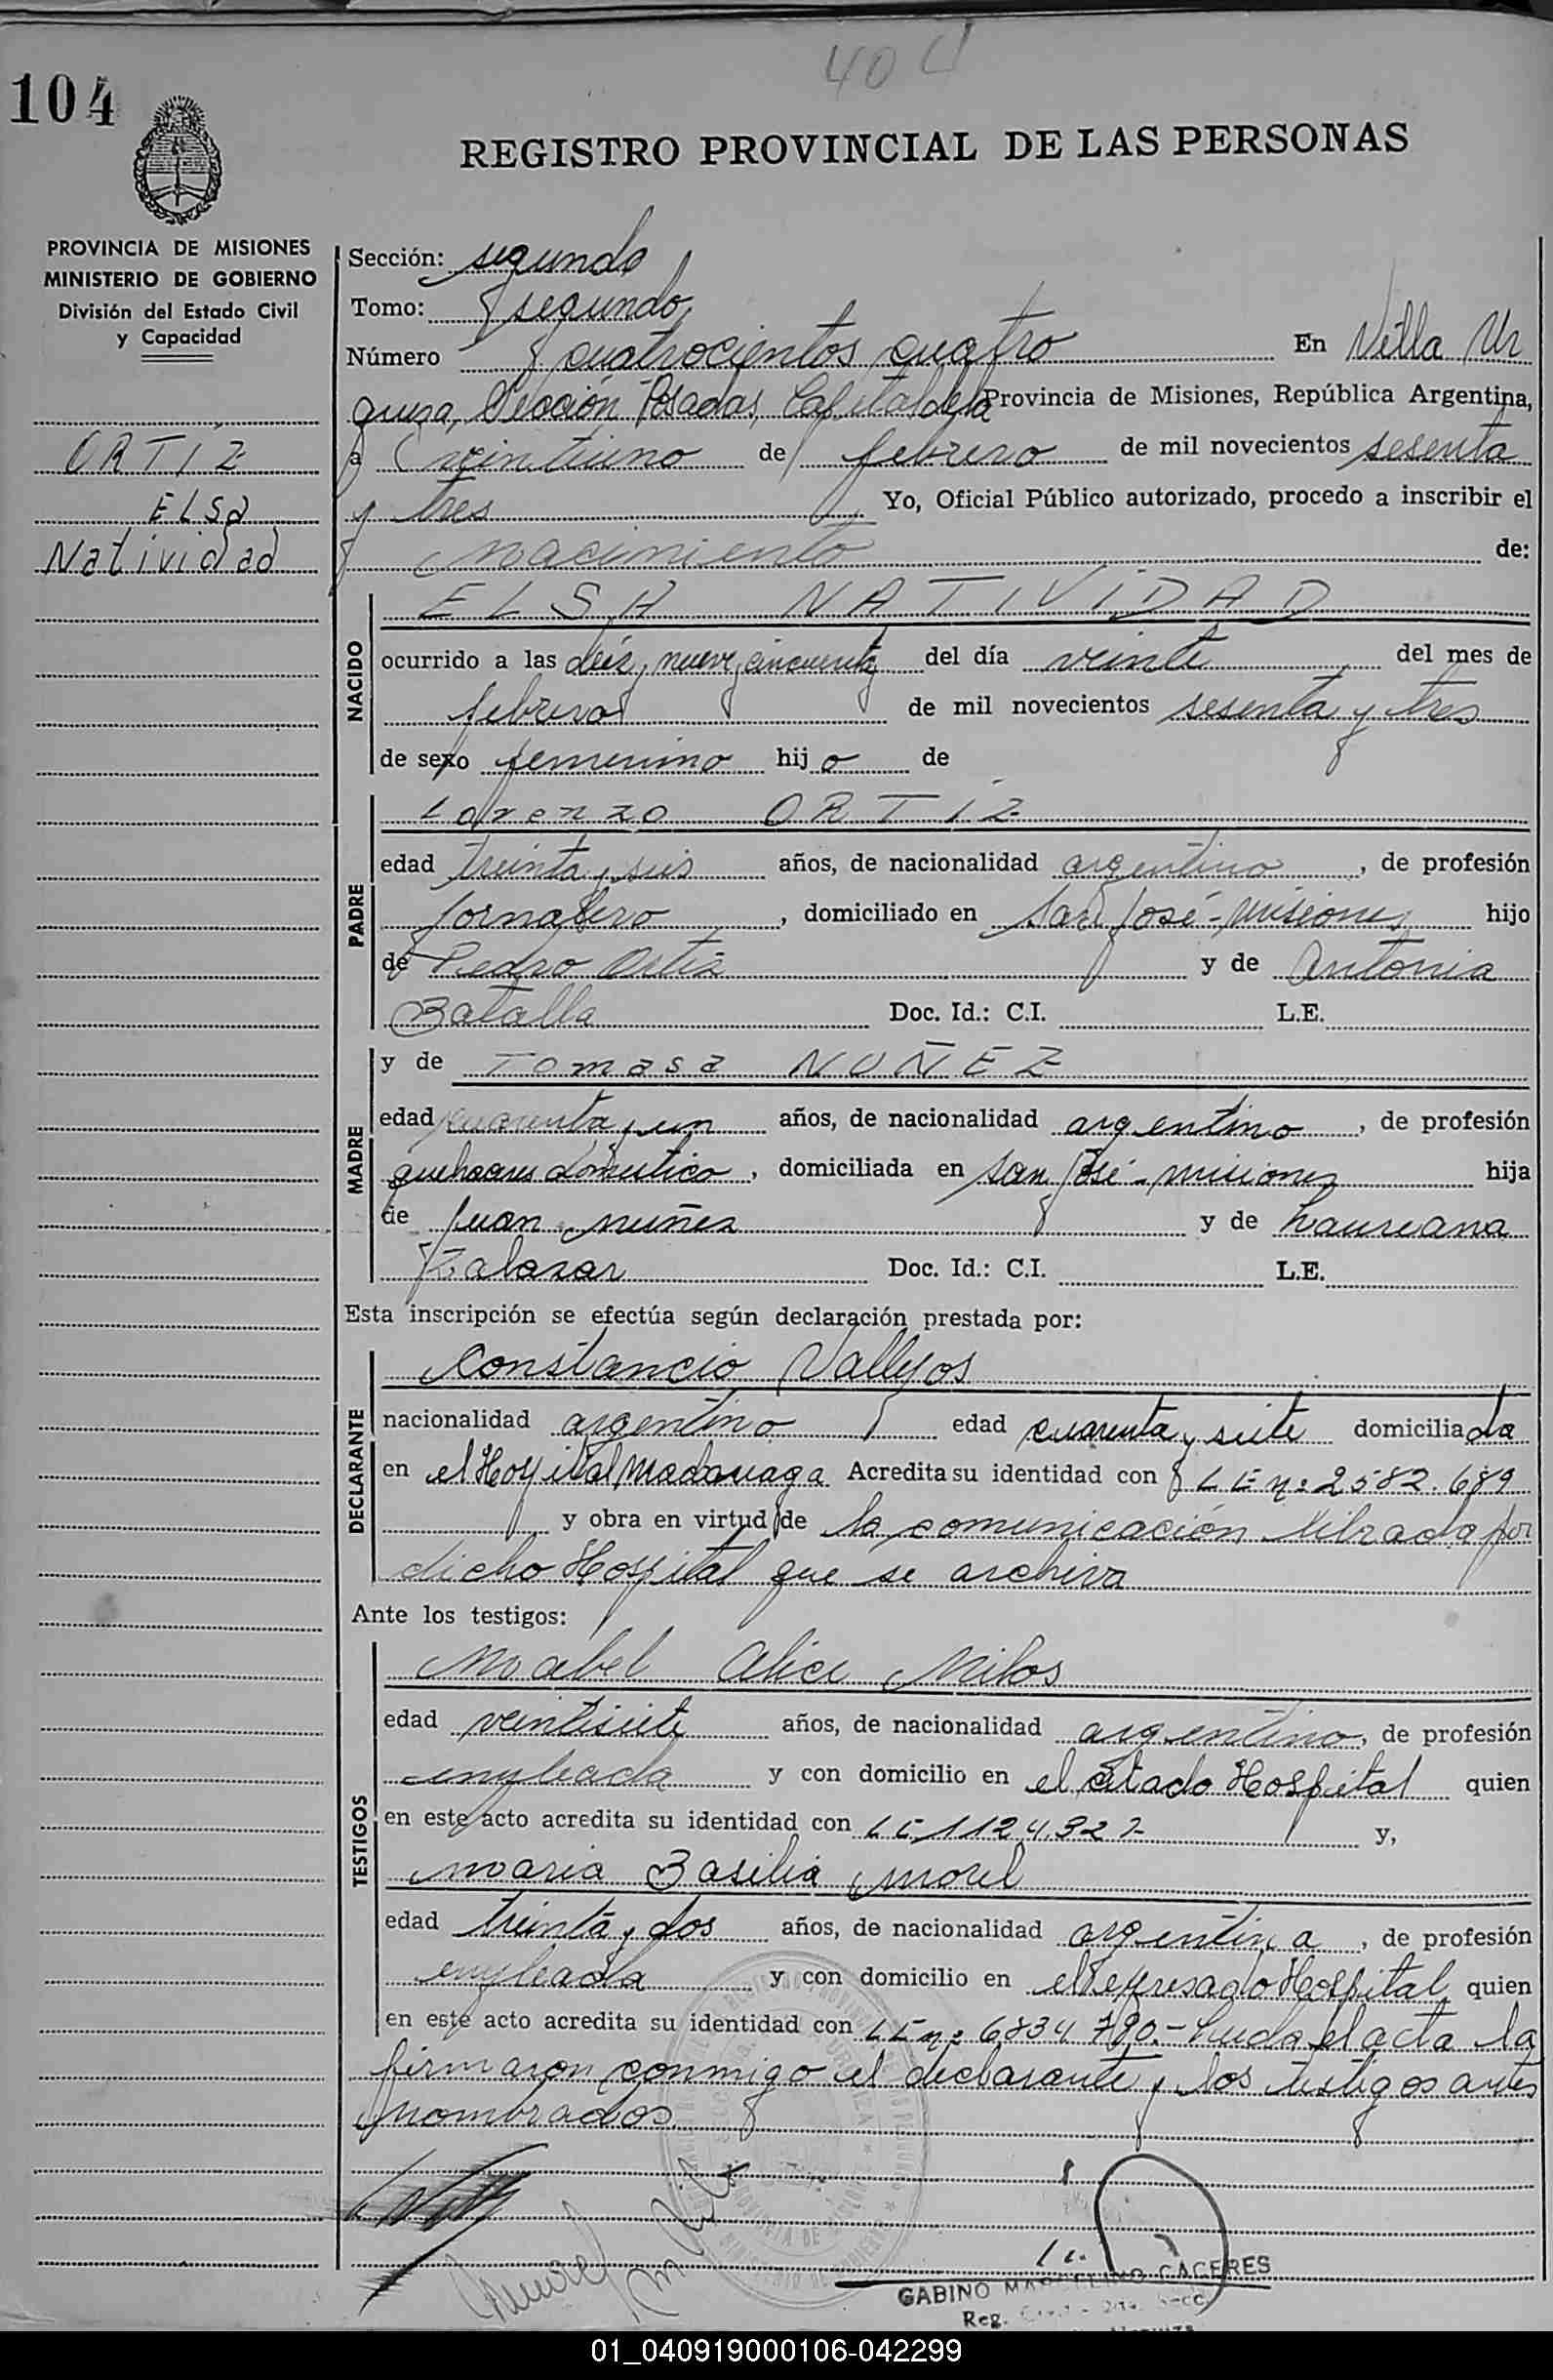 404
104
REGISTRO PROVINCIAL DE LAS PERSONAS
PROVINCIA DE MISIONES
MINISTERIO DE GOBIERNO
División del Estado Civil
y Capacidad
ORTIZ
ELSa
Natividad
Sección: segundo
Tomo: segundo
Número cuatrocientos cuatro En Villa Ur
quiza, Sección Posadas, Capital de la Provincia de Misiones, República Argentina,
a veintiuno de febrero de mil novecientos sesenta
y tres Yo, Oficial Público autorizado, procedo a inscribir el
nacimiento de:
NACIDO
ELSA NATIVIDAD
ocurrido a las diez y nueve y cincuenta del día veinte del mes de
febrero de mil novecientos sesenta y tres
de sexo femenino hijo de
PADRE
Lorenzo ORTIZ
edad treinta y seis años, de nacionalidad argentino, de profesión
jornalero, domiciliado en San José - Misiones hijo
de Pedro Ortiz y de Antonia
Batalla Doc. Id.: C.I. L.E.
MADRE
y de Tomasa NUÑEZ
edad cuarenta y un años, de nacionalidad argentino, de profesión
quehaceres domestico, domiciliada en San José - misiones hija
de Juan nuñez y de Laureana
Zalazar Doc. Id.: C.I. L.E.
Esta inscripción se efectúa según declaración prestada por:
DECLARANTE
Constancio Vallejos
nacionalidad argentino edad cuarenta y siete domiciliado
en el Hospital Madariaga Acredita su identidad con L E nº 2582.689
y obra en virtud de la comunicación librada por
dicho Hospital que se archiva
Ante los testigos:
TESTIGOS
Mabel Alice Milos
edad veintisiete años, de nacionalidad argentino, de profesión
empleada y con domicilio en el citado Hospital quien
en este acto acredita su identidad con L E 1124.327 y,
Maria Basilia Morel
edad treinta y dos años, de nacionalidad argentina, de profesión
empleada y con domicilio en el expresado Hospital quien
en este acto acredita su identidad con L E nº 6834780.- Leida el acta la
firmaron conmigo el declarante y los testigos antes
nombrados
GABINO MARCELINO CACERES
Reg.
01_040919000106-042299